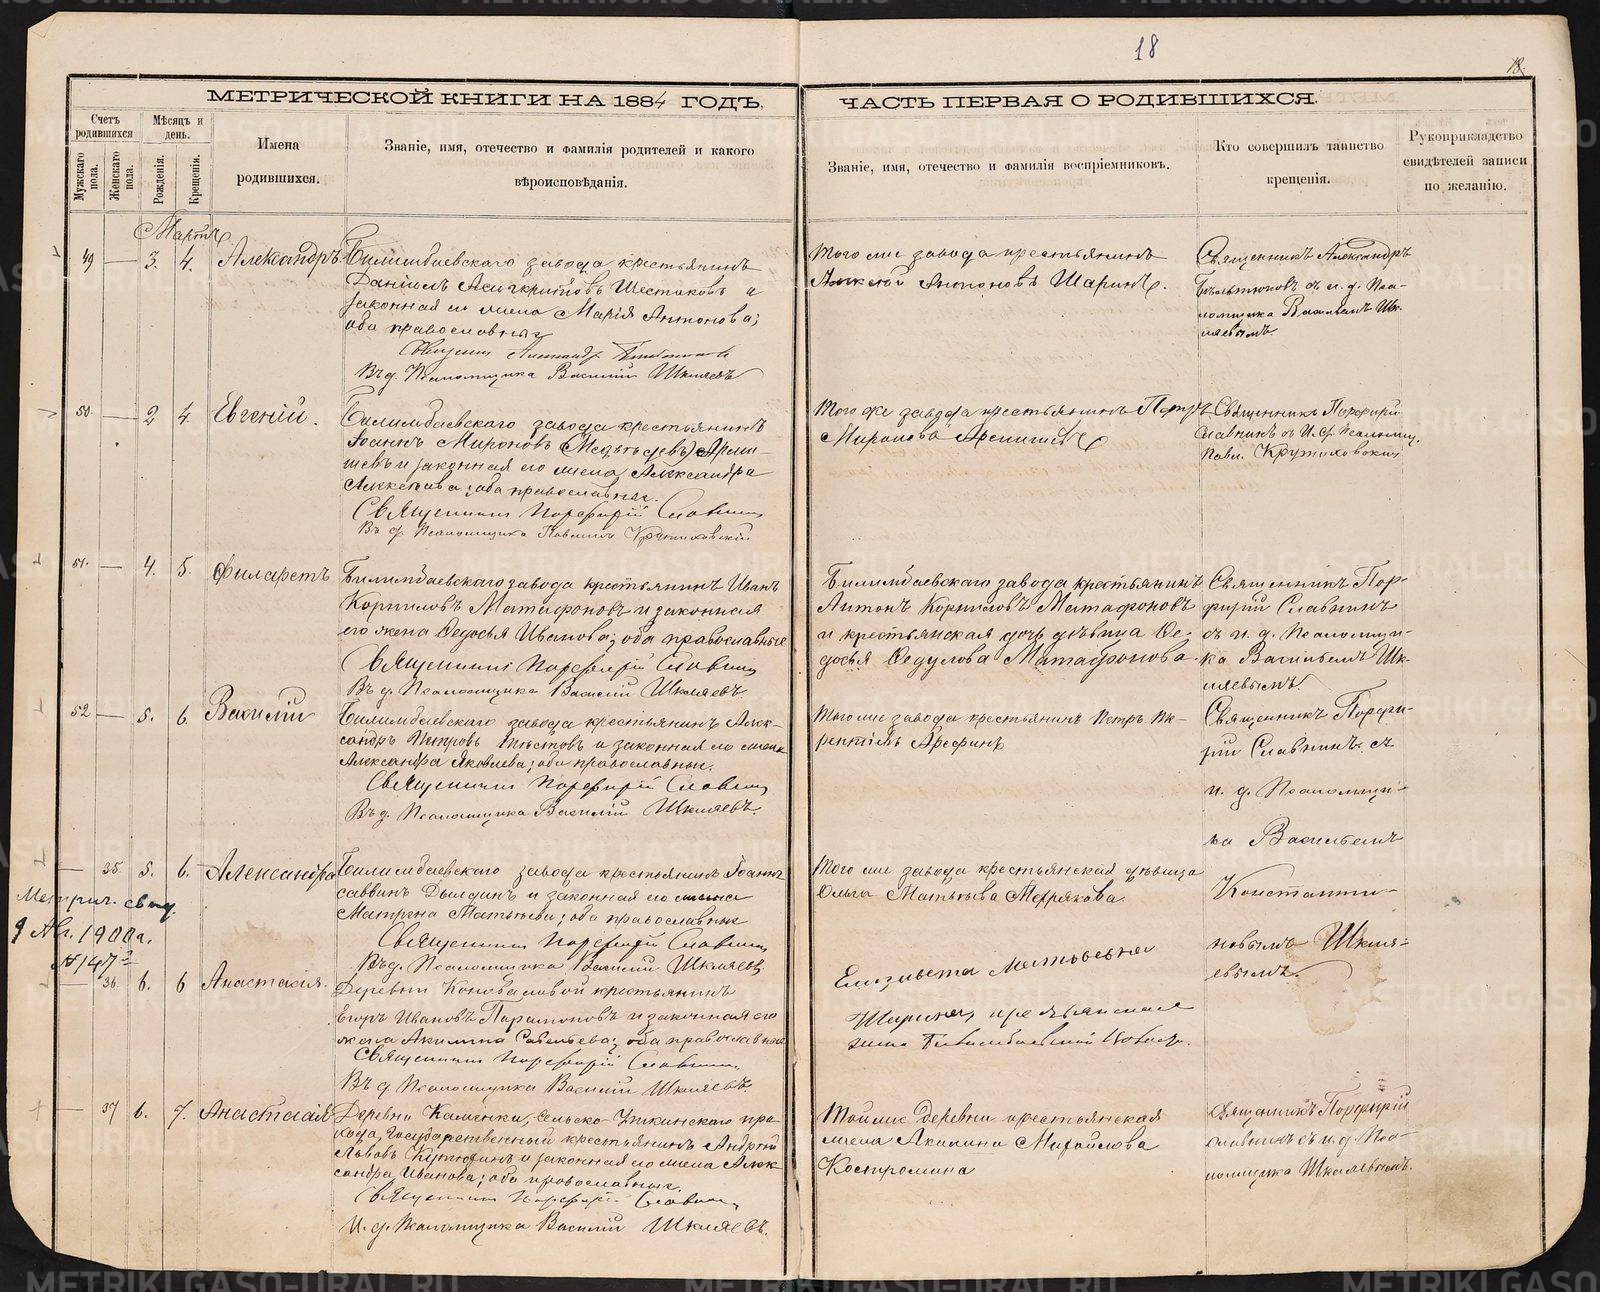 18
18.
МЕТРИЧЕСКОЙ КНИГИ НА 1884 ГОДЪ,
ЧАСТЬ ПЕРВАЯ О РОДИВШИХСЯ.
Счетъ родившихся
Мужскаго пола.
Женскаго пола.
Мѣсяцъ и день.
Рожденія.
Крещенія.
Имена родившихся.
Званіе, имя, отечество и фамилія родителей и какого вѣроисповѣданія.
Званіе, имя, отечество и фамилія воспріемниковъ.
Кто совершилъ таинство крещенія.
Рукоприкладство свидѣтелей записи по желанію.
Мартъ
49 — 3. 4. Александръ
Билимбаевскаго завода крестьянинъ
Даніилъ Асигкритовъ Шестаковъ и
законная его жена Марія Антонова;
оба православные
Священник Александр
Въ д. Псаломщика Василій Шкляевъ
Того же завода крестьянинъ
Алексѣй Антоновъ Шаринъ.
Священникъ Александръ
съ и. д. Пса-
ломщика Василіемъ Шк-
ляевымъ.
50. — 2 4. Евгеній.
Билимбаевскаго завода крестьянинъ
Іоаннъ Мироновъ
и законная его жена Александра
Алексѣева; оба православные.
Священникъ Порфирій Славнин
Въ д. Псаломщика Павлинъ Крутиховскій
Того же завода крестьянинъ Петръ
Мироновъ
Священникъ Порфирій
Славнинъ съ И. д. Псаломщ.
Павл. Крутиховским
51. — 4. 5. Филаретъ
Билимбаевскаго завода крестьянинъ Иванъ
Корниловъ Матафоновъ и законная
его жена Ѳедосья Иванова; оба православные
Священникъ Порфирій Славнин
Въ д. Псаломщика Василій Шкляевъ
Билимбаевскаго завода крестьянинъ
Антонъ Корниловъ Матафоновъ
и крестьянская дочь дѣвица Ѳе-
досья Ѳедулова Матафонова.
Священникъ Пор-
фирій Славнинъ
съ и. д. Псаломщи-
ка Василіемъ Шк-
ляевымъ.
52 — 5. 6. Василій
Билимбаевскаго завода крестьянинъ Алек-
сандръ Петровъ и законная его жена
Александра Яковлева; оба православные.
Священникъ Порфирій Славнин
Въ д. Псаломщика Василій Шкляевъ.
Того же завода крестьянинъ Петръ
Арефинъ
Священникъ Порфи-
рій Славнинъ съ
и. д. Псаломщи-
ка Василіемъ
Константи-
новымъ Шкля-
евымъ.
— 35. 5. 6. Александра
Билимбаевскаго завода крестьянинъ Іоаннъ
Саввинъ Дылдинъ и законная его жена
Матрена Матвѣева; оба православные
Священникъ Порфирій Славнин
Въ д. Псаломщика Василій Шкляевъ
Того же завода крестьянская дѣвица
Ольга Матвѣева Мокрякова
Метрич. свид.
9 Авг. 1900 г.
№ 147
— 36. 6. 6 Анастасія.
Деревни Коноваловой крестьянинъ
Егоръ Ивановъ Парамоновъ и законная его
жена Акилина Савельева; оба православные
Священникъ Порфирій Славнин.
Въ д. Псаломщика Василій Шкляевъ.
Елизавета Матвѣевна
Шарина, крестьянская
жена Билимбаевскаго завода.
— 37 6. 7. Анастасія
Деревни Каменки, Сельско-Уткинскаго при-
хода, Государственный крестьянинъ Андрей
Львовъ Кутюхинъ и законная его жена Алек-
сандра Иванова; оба православные.
Священникъ Порфирій Славнин,
И. д. Псаломщика Василій Шкляевъ.
Той же деревни крестьянская
жена Акилина Михайлова
Костромина
Священникъ Порфирій
Славнинъ съ и. д. Пса-
ломщика Шкляевымъ.
METRIKI.GASO-URAL.RU